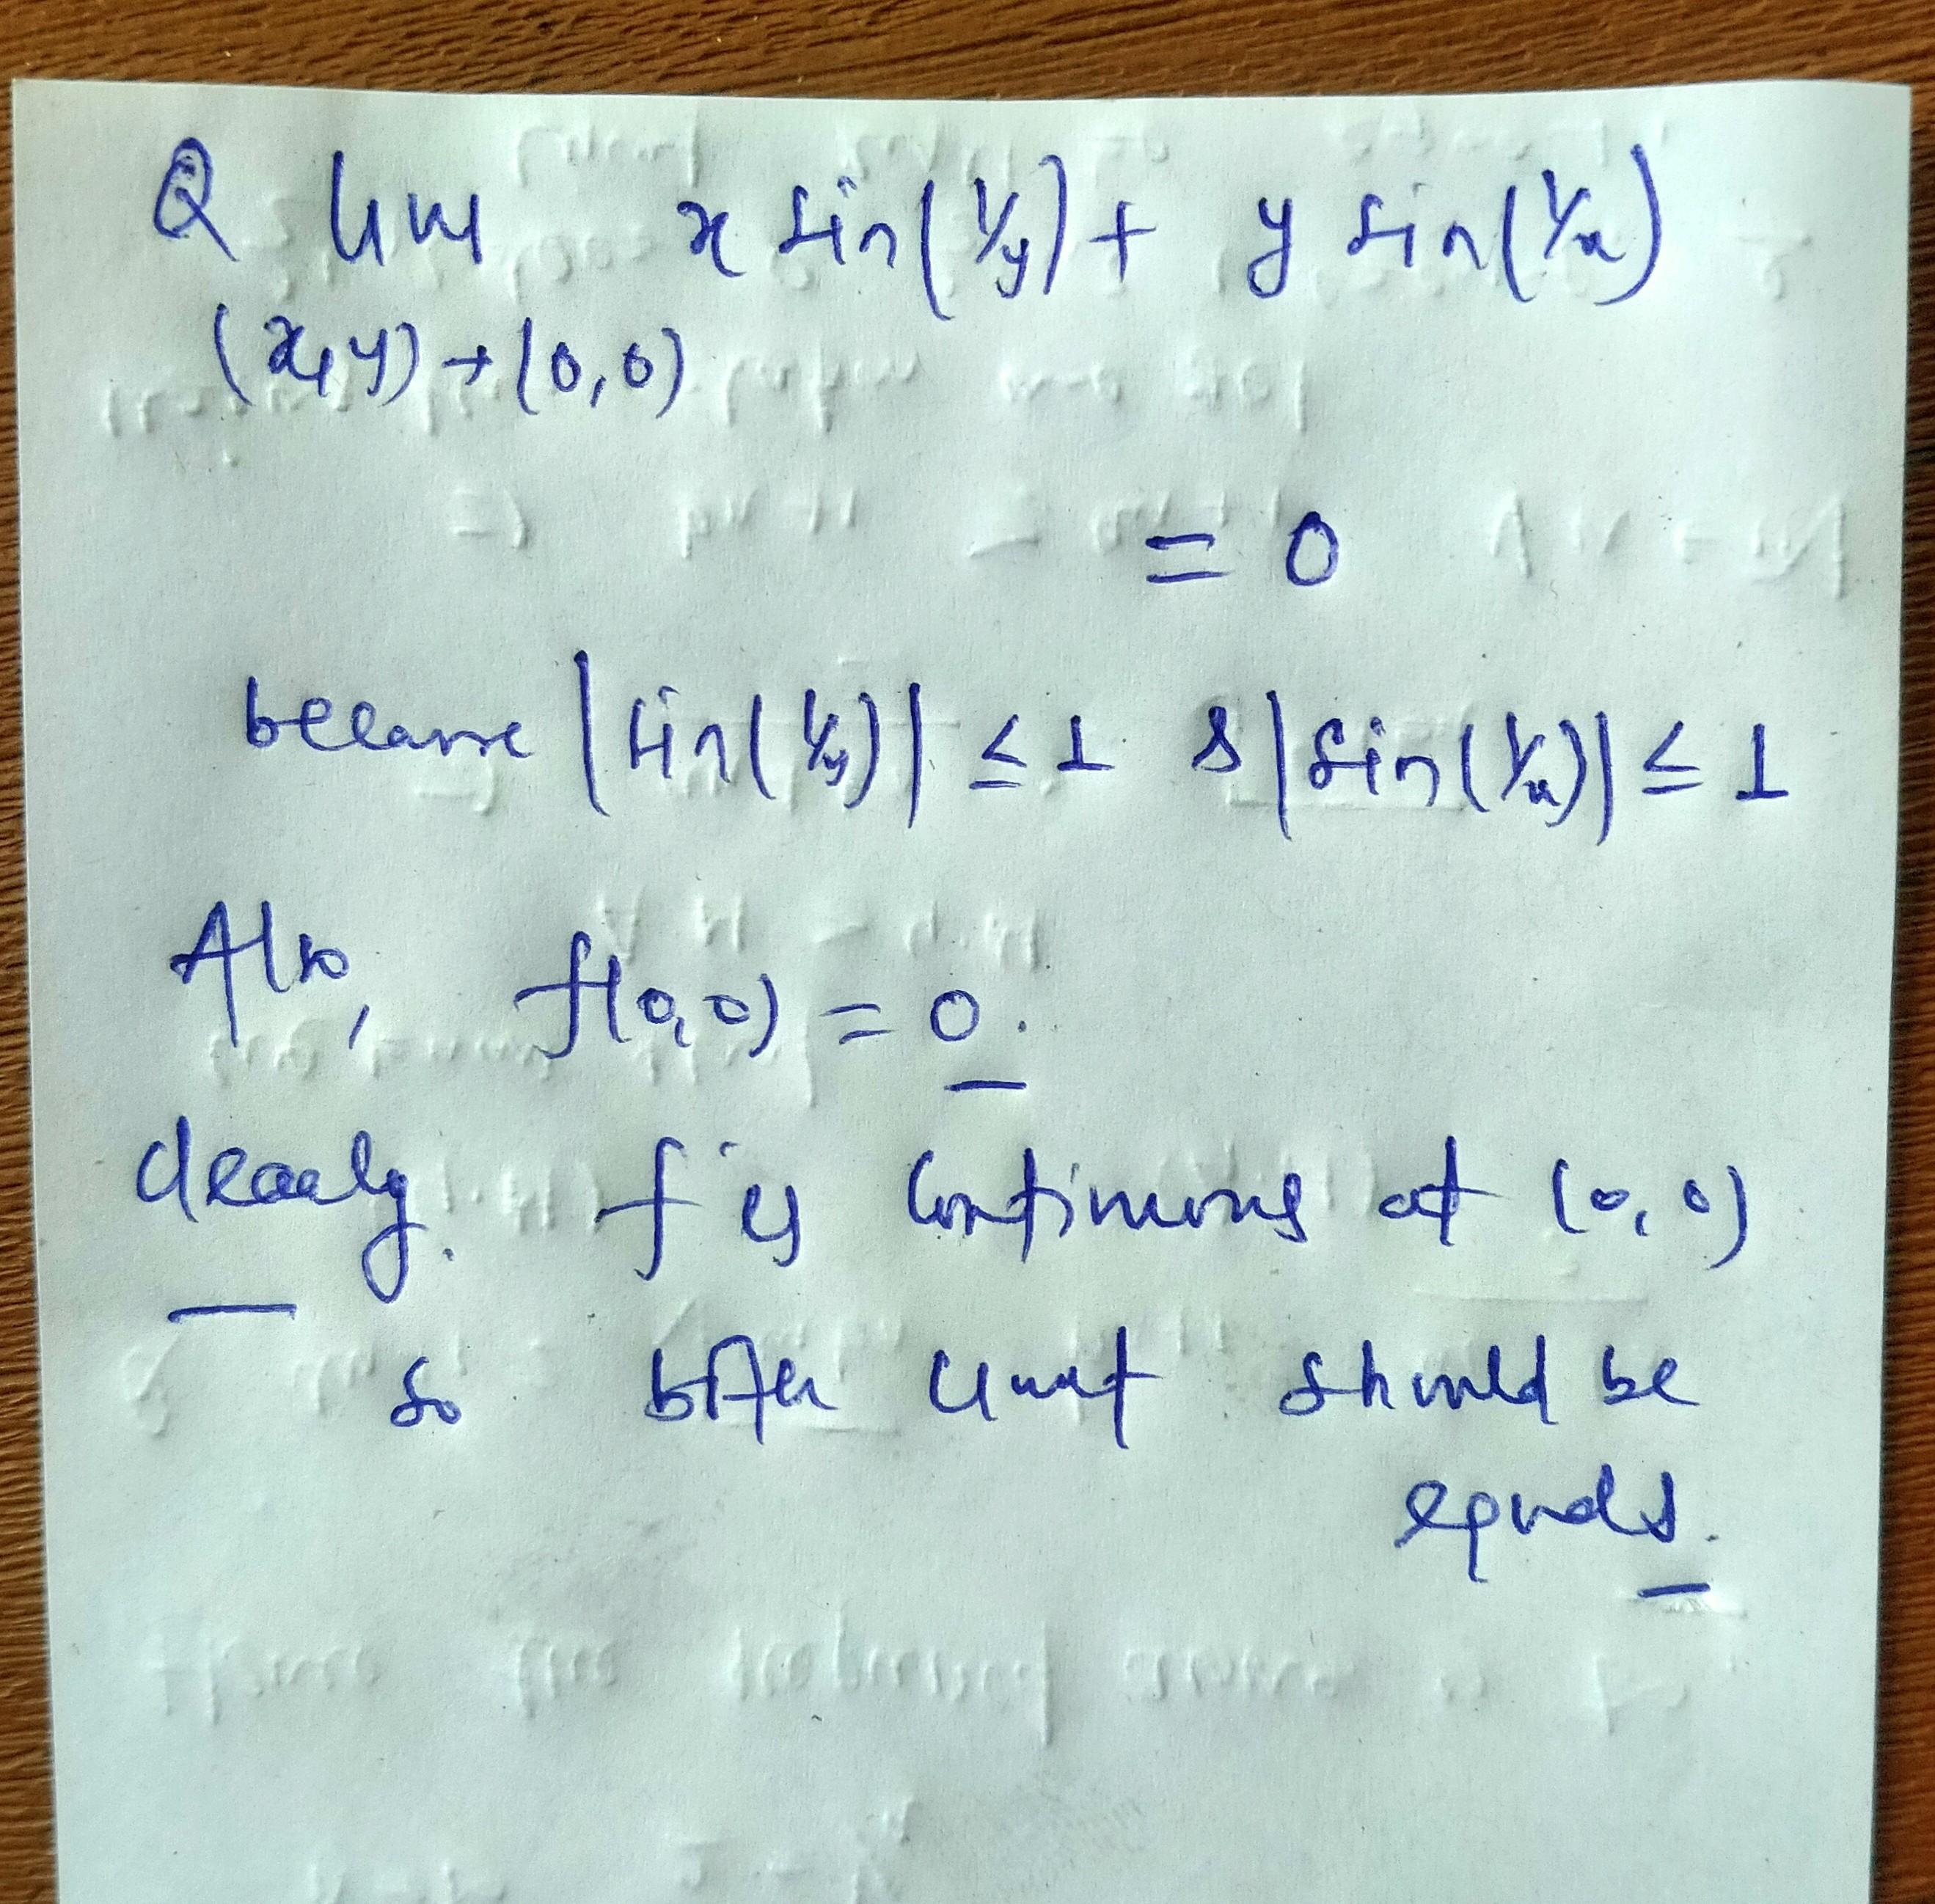 Q lim x sin(1/y) + y sin(1/x)
(x,y)→(0,0)
= 0
because |sin(1/y)| ≤ 1 & |sin(1/x)| ≤ 1
Also, f(0,0) = 0.
Clearly. f is continuous at (0,0)
so limit should be
equals.